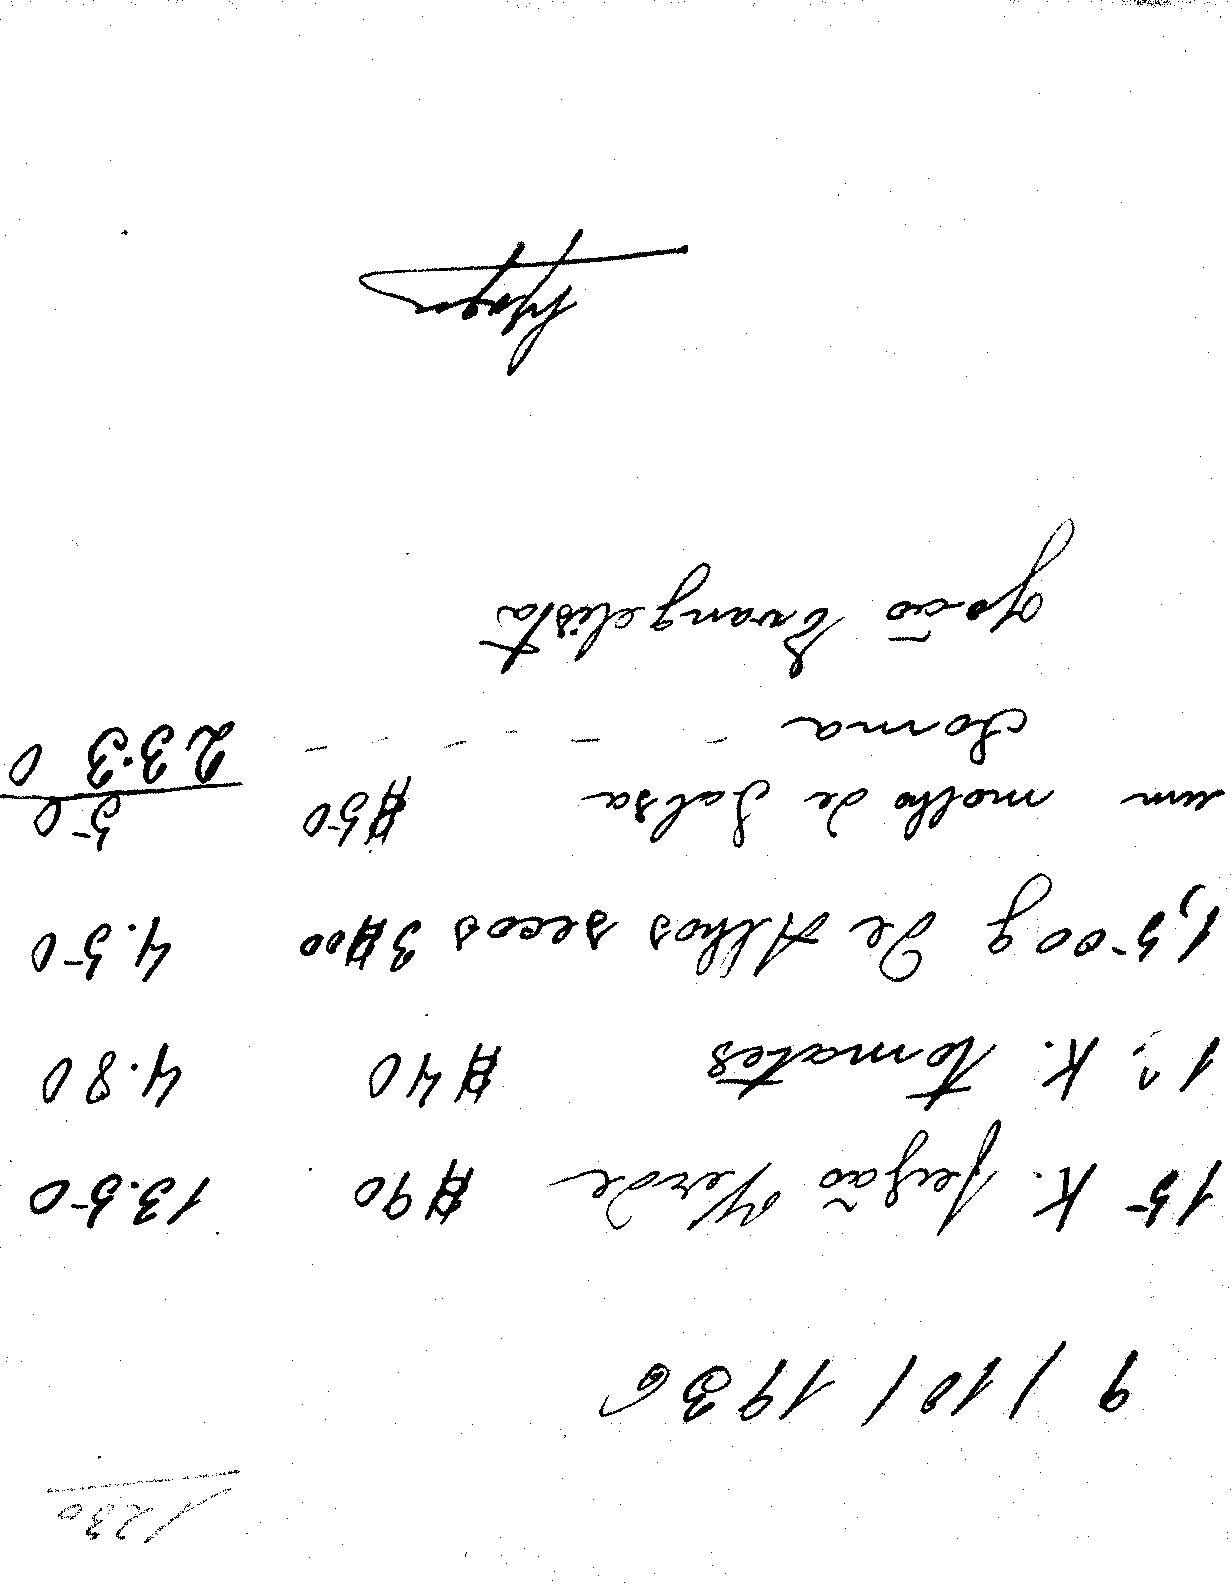 1230
9/10/1936
15 K. feijão Verde $90 13.50
12 K. tomates $40 4.80
1,500 g de Alhos secos 3$00 4.50
um molho de Salsa $50 50
Soma - - - - - - - 23.30
João Evangelista